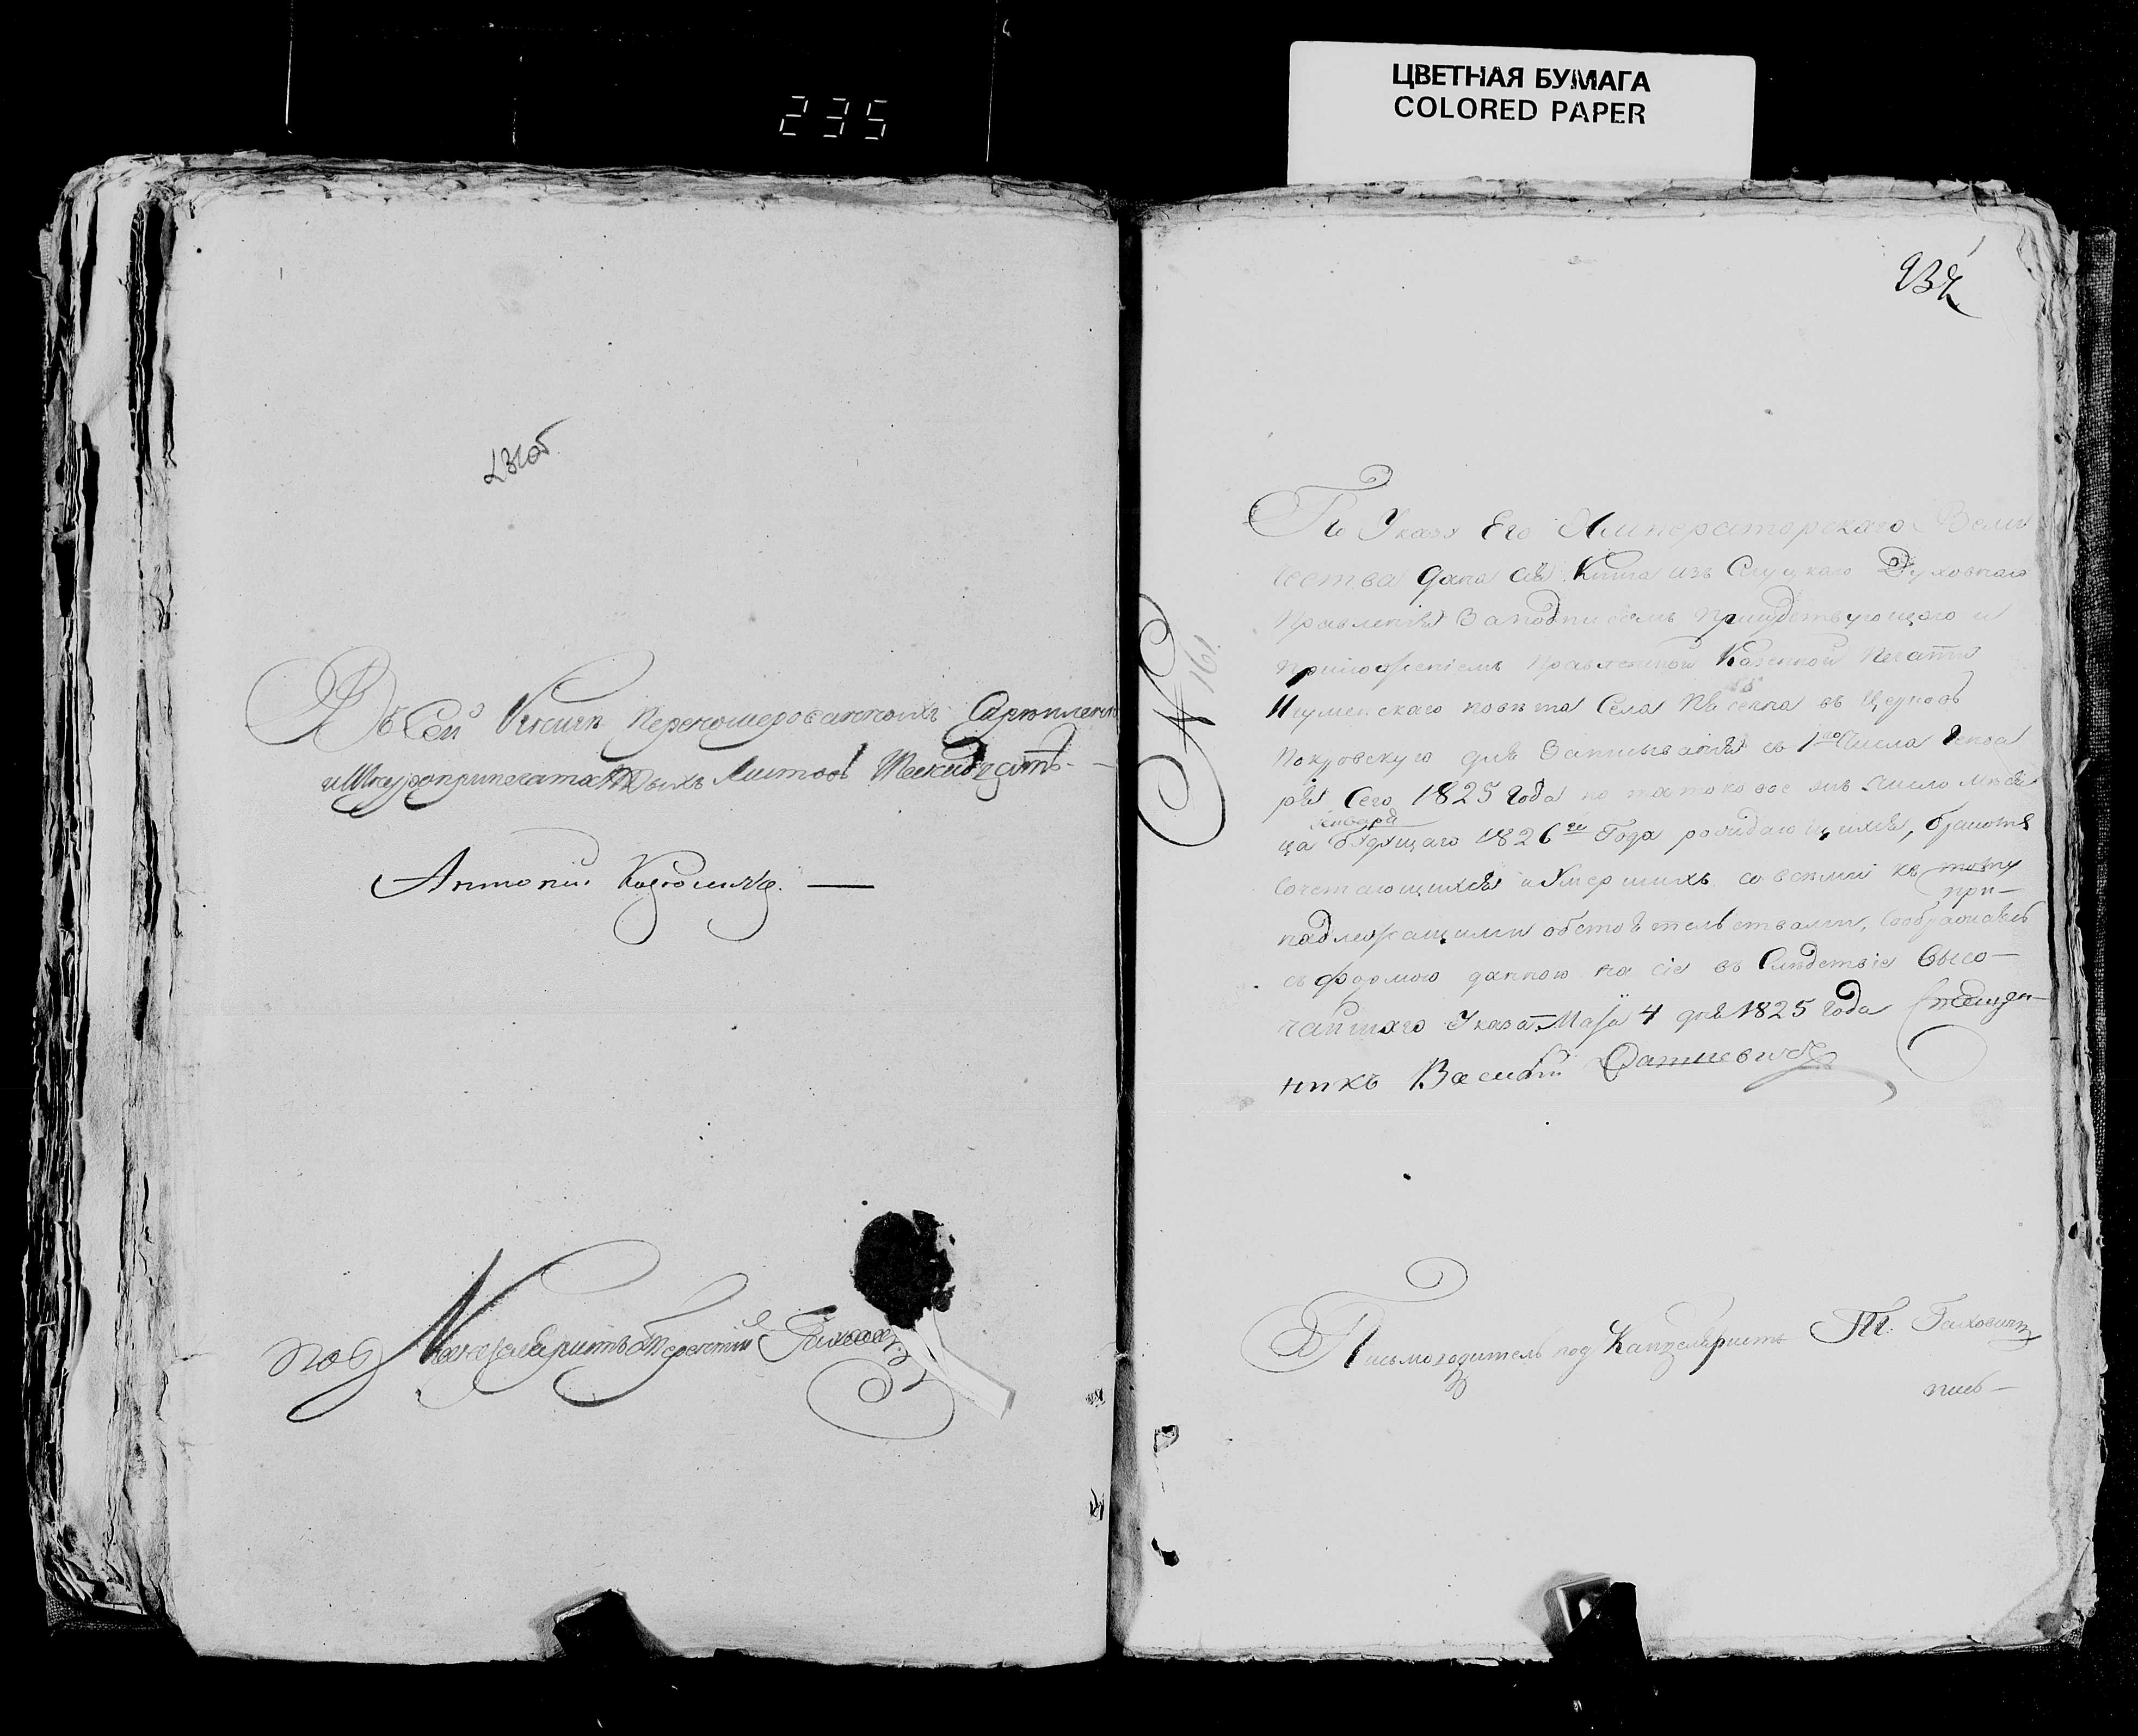 235
ЦВЕТНАЯ БУМАГА
COLORED PAPER
Въ Сей Книги перенумерованныхъ Скрѣпленн
и Шнуроприпечатанныхъ Листовъ
Антоній
под Канцеляристъ
По Указу Его Императорскаго Вели
чества дана сія Книга изъ Слуцкаго Духовнаго
Правленія За подписомъ присудствующаго и
приложеніемъ правленной Казенной печати
Игуменскаго повѣта Села въ Церковь
Покровскую для Записыванія съ 1го Числа Генва
ря Сего 1825 года по таковое жъ Число мѣся
Января
ца будущаго 1826го Года раждающихся, бракомъ
Сочетающихся и Умершихъ со всеми къ тому
при-
надлежащими обстоятельствами, Соображаясь
съ формою данною на сіе въ Слѣдствіе Высо-
чайшаго Указа. Маія 4 дня 1825 года Священ-
никъ Василій
№ 161.
Письмоводитель под Канцеляристъ